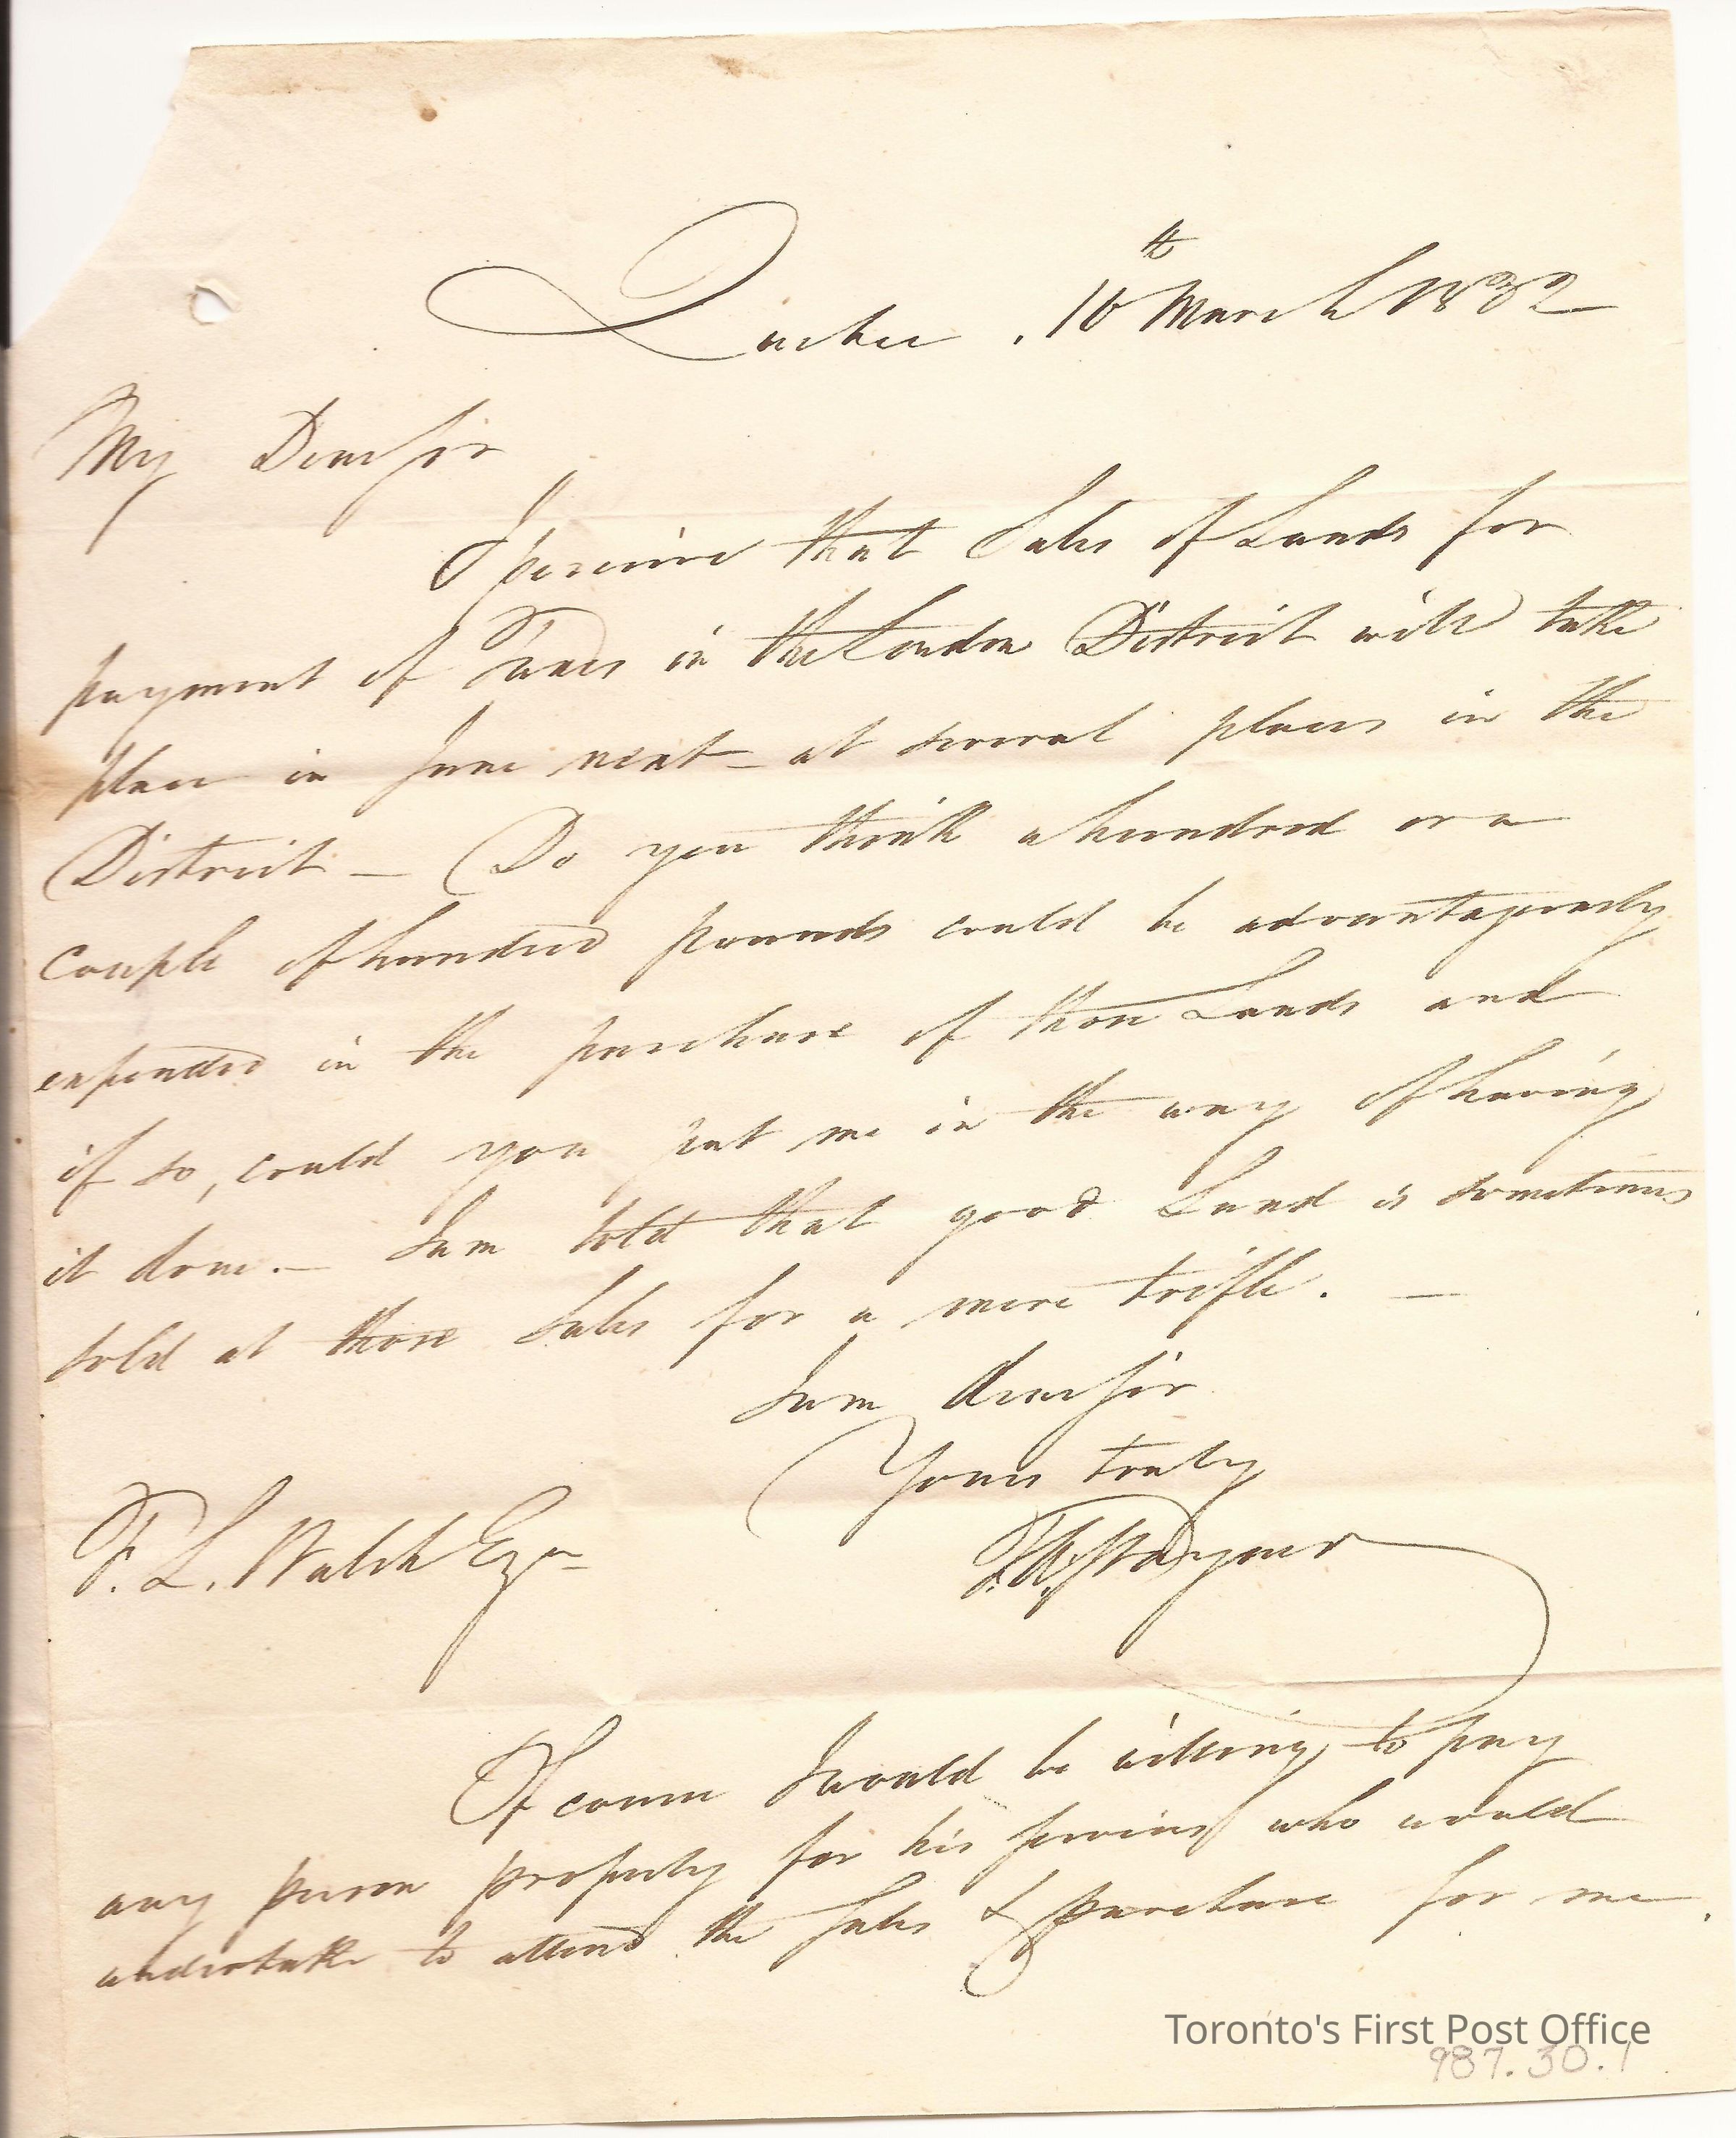 Quebec. 16th March 1832
My Dear Sir
I perceive that Sales of Lands for
payment of Taxes in the London District will take
place in June next - at several places in the
District - Do you think a hundred or a
couple of hundred pounds could be advantageously
expended in the purchase of those Lands and
if so, could you put me in the way of having
it done. - I am told that good Land is sometimes
sold at those Sales for a mere trifle. -
I am dear Sir
Yours truly
F. L. Walsh Esqr
Of course I would be willing to pay
any person properly for his services who would
undertake to attend the Sales & purchase for me.
Toronto's First Post Office
987.30.1